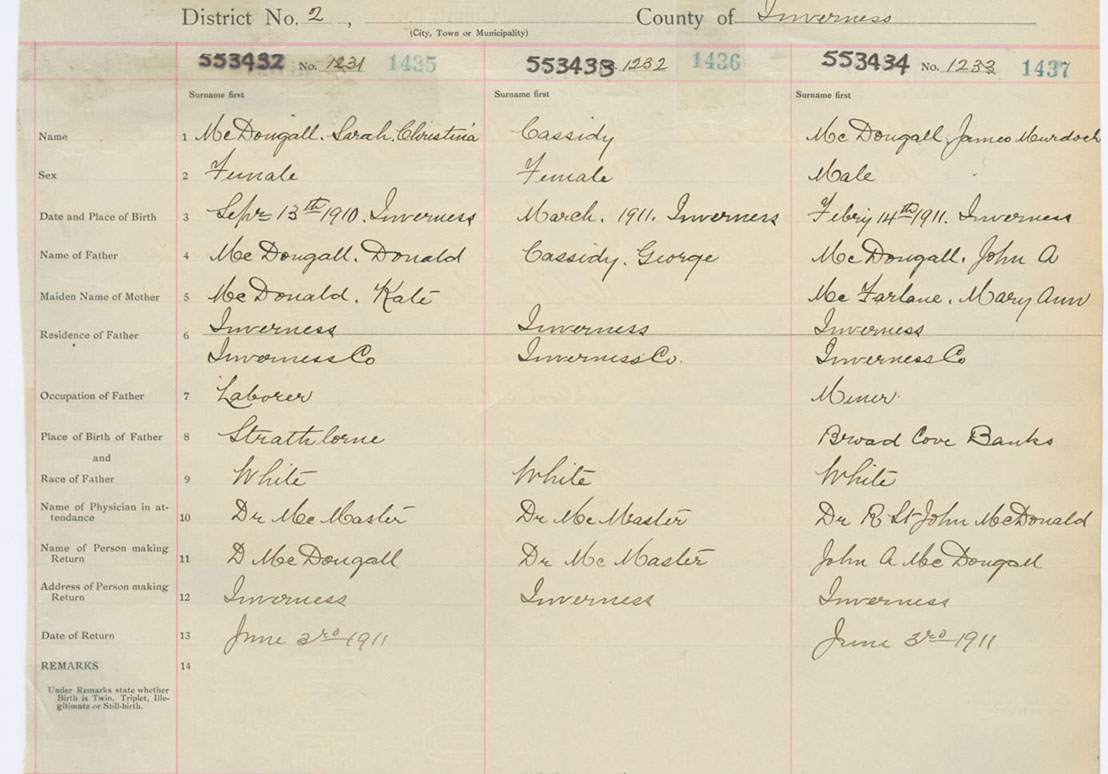 District No. 2, County of Inverness
(City, Town or Municipality)
553432 No. 1231 1435 553433 1232 1436 553434 No. 1233 1437
Surname first Surname first Surname first
Name 1 McDougall. Sarah. Christina Cassidy McDougall, James Murdoch
Sex 2 Female Female Male
Date and Place of Birth 3 Sepr 13th 1910. Inverness March. 1911. Inverness Febry 14th 1911. Inverness
Name of Father 4 McDougall. Donald Cassidy. George McDougall. John A
Maiden Name of Mother 5 McDonald. Kate McFarlane. Mary Ann
Residence of Father 6 Inverness Inverness Inverness
Inverness Co Inverness Co. Inverness Co
Occupation of Father 7 Laborer Miner
Place of Birth of Father 8 Strathlorne Broad Cove Banks
and
Race of Father 9 White White White
Name of Physician in at-
tendance 10 Dr McMaster Dr McMaster Dr R St John McDonald
Name of Person making
Return 11 D McDougall Dr McMaster John A McDougall
Address of Person making
Return 12 Inverness Inverness Inverness
Date of Return 13 June 3rd 1911 June 3rd 1911
REMARKS 14
Under Remarks state whether
Birth is Twin, Triplet, Ille-
gitimate or Still-birth.